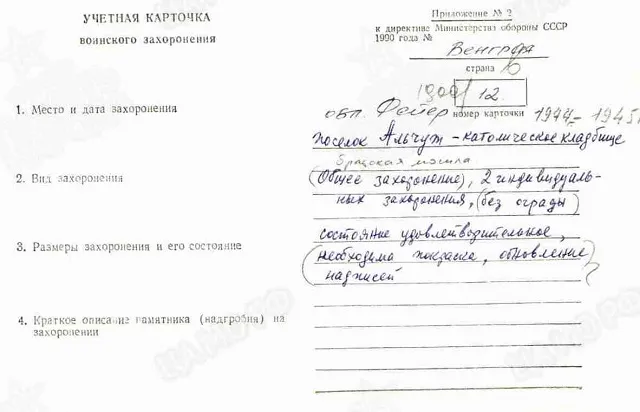 УЧЕТНАЯ КАРТОЧКА
воинского захоронения
Приложение № 2
к директиве Министерства обороны СССР
1990 года №
Венгрия
страна
12.
номер карточки
1. Место и дата захоронения
обл. Фейер 1944-1945г
поселок Альчут - католическое кладбище
братская могила
2. Вид захоронения
(Общее захоронение), 2 индивидуаль-
ных захоронения, (без ограды)
3. Размеры захоронения и его состояние
состояние удовлетводительное,
(необходима покраска, обновление
надписей)
4. Краткое описание памятника (надгробия) на
захоронении